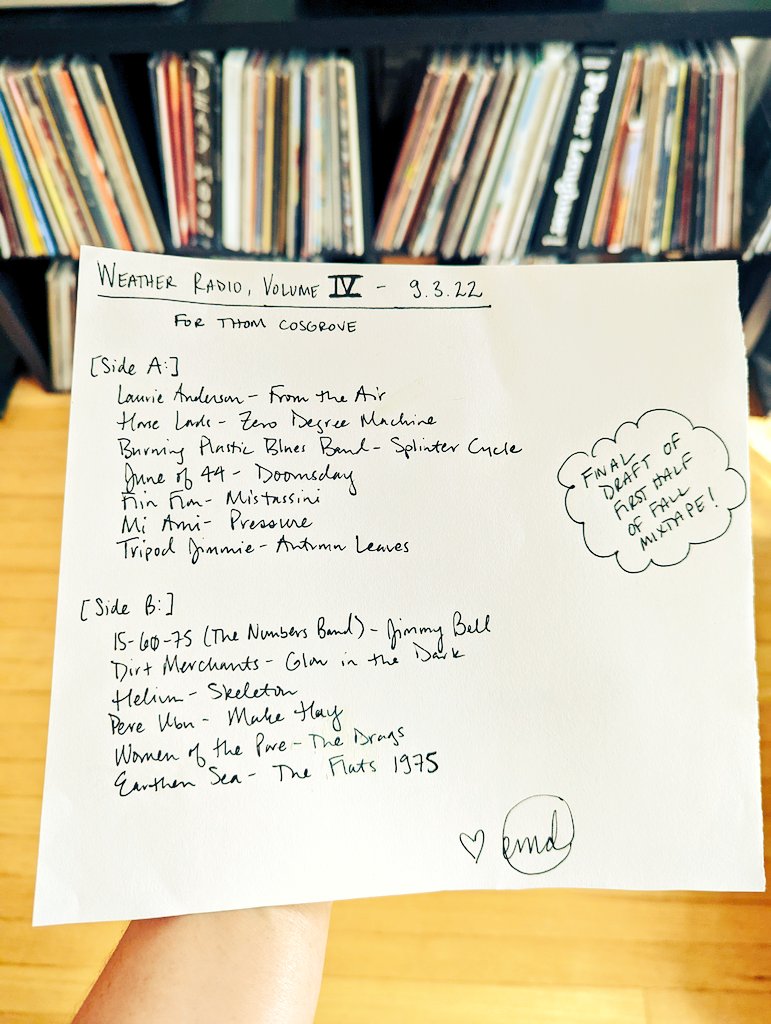 Peter Laughner
WEATHER RADIO, VOLUME IV - 9.3.22
FOR THOM COSGROVE
[Side A:]
Laurie Anderson - From the Air
Horse Lords - Zero Degree Machine
Burning Plastic Blues Band - Splinter Cycle
June of 44 - Doomsday
Flin Flon - Mistassini
Mi Ami - Pressure
Tripod Jimmie - Autumn Leaves
FINAL
DRAFT OF
FIRST HALF
OF FALL
MIXTAPE!
[Side B:]
15-60-75 (The Numbers Band) - Jimmy Bell
Dirt Merchants - Glow in the Dark
Helium - Skeleton
Pere Ubu - Make Hay
Women of the Pore - The Drags
Earthen Sea - The Flats 1975
♡ emd